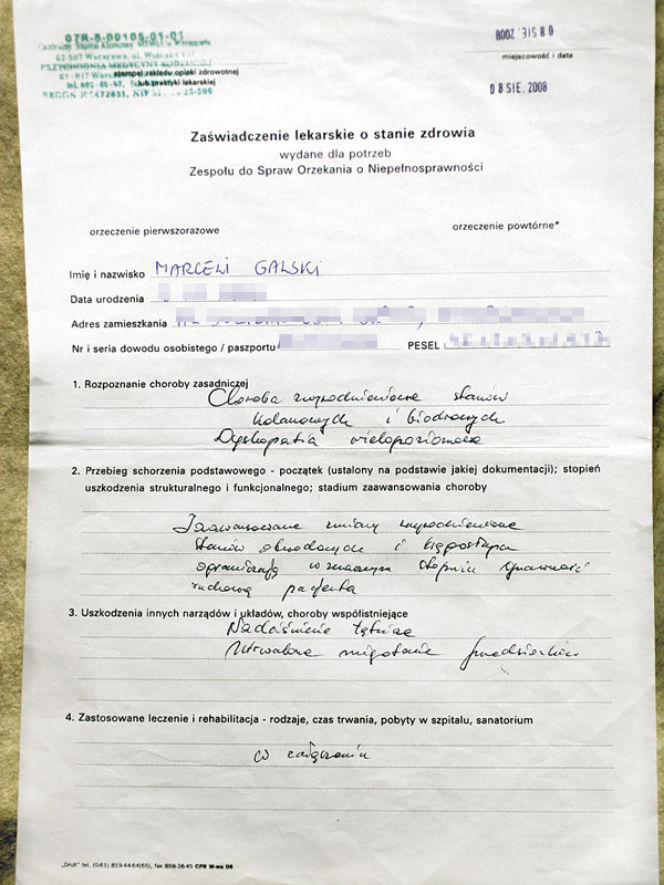 07R-8-00105-01-01
Centralny Szpital Kliniczny MSWiA w Warszawie
02-507 Warszawa, ul. Wołoska
stempel zakładu opieki zdrowotnej
lub praktyki lekarskiej
08 SIE. 2008
miejscowość i data
08 SIE. 2008
Zaświadczenie lekarskie o stanie zdrowia
wydane dla potrzeb
Zespołu do Spraw Orzekania o Niepełnosprawności
orzeczenie pierwszorazowe
orzeczenie powtórne*
Imię i nazwisko MARCELI GALSKI
Data urodzenia
Adres zamieszkania
Nr i seria dowodu osobistego / paszportu PESEL
1. Rozpoznanie choroby zasadniczej
Choroba zwyrodnieniowa stawów
kolanowych i biodrowych
Dyskopatia wielopoziomowa
2. Przebieg schorzenia podstawowego - początek (ustalony na podstawie jakiej dokumentacji); stopień
uszkodzenia strukturalnego i funkcjonalnego; stadium zaawansowania choroby
Zaawansowane zmiany zwyrodnieniowe
stawów obwodowych i kręgosłupa
ograniczają w znacznym stopniu sprawność
ruchową pacjenta
3. Uszkodzenia innych narządów i układów, choroby współistniejące
Nadciśnienie tętnicze
Utrwalone migotanie przedsionków
4. Zastosowane leczenie i rehabilitacja - rodzaje, czas trwania, pobyty w szpitalu, sanatorium
w załączeniu
„Druk" tel. (0-61) 819-44-64(65), fax 898-38-45 CPR W-wa 04